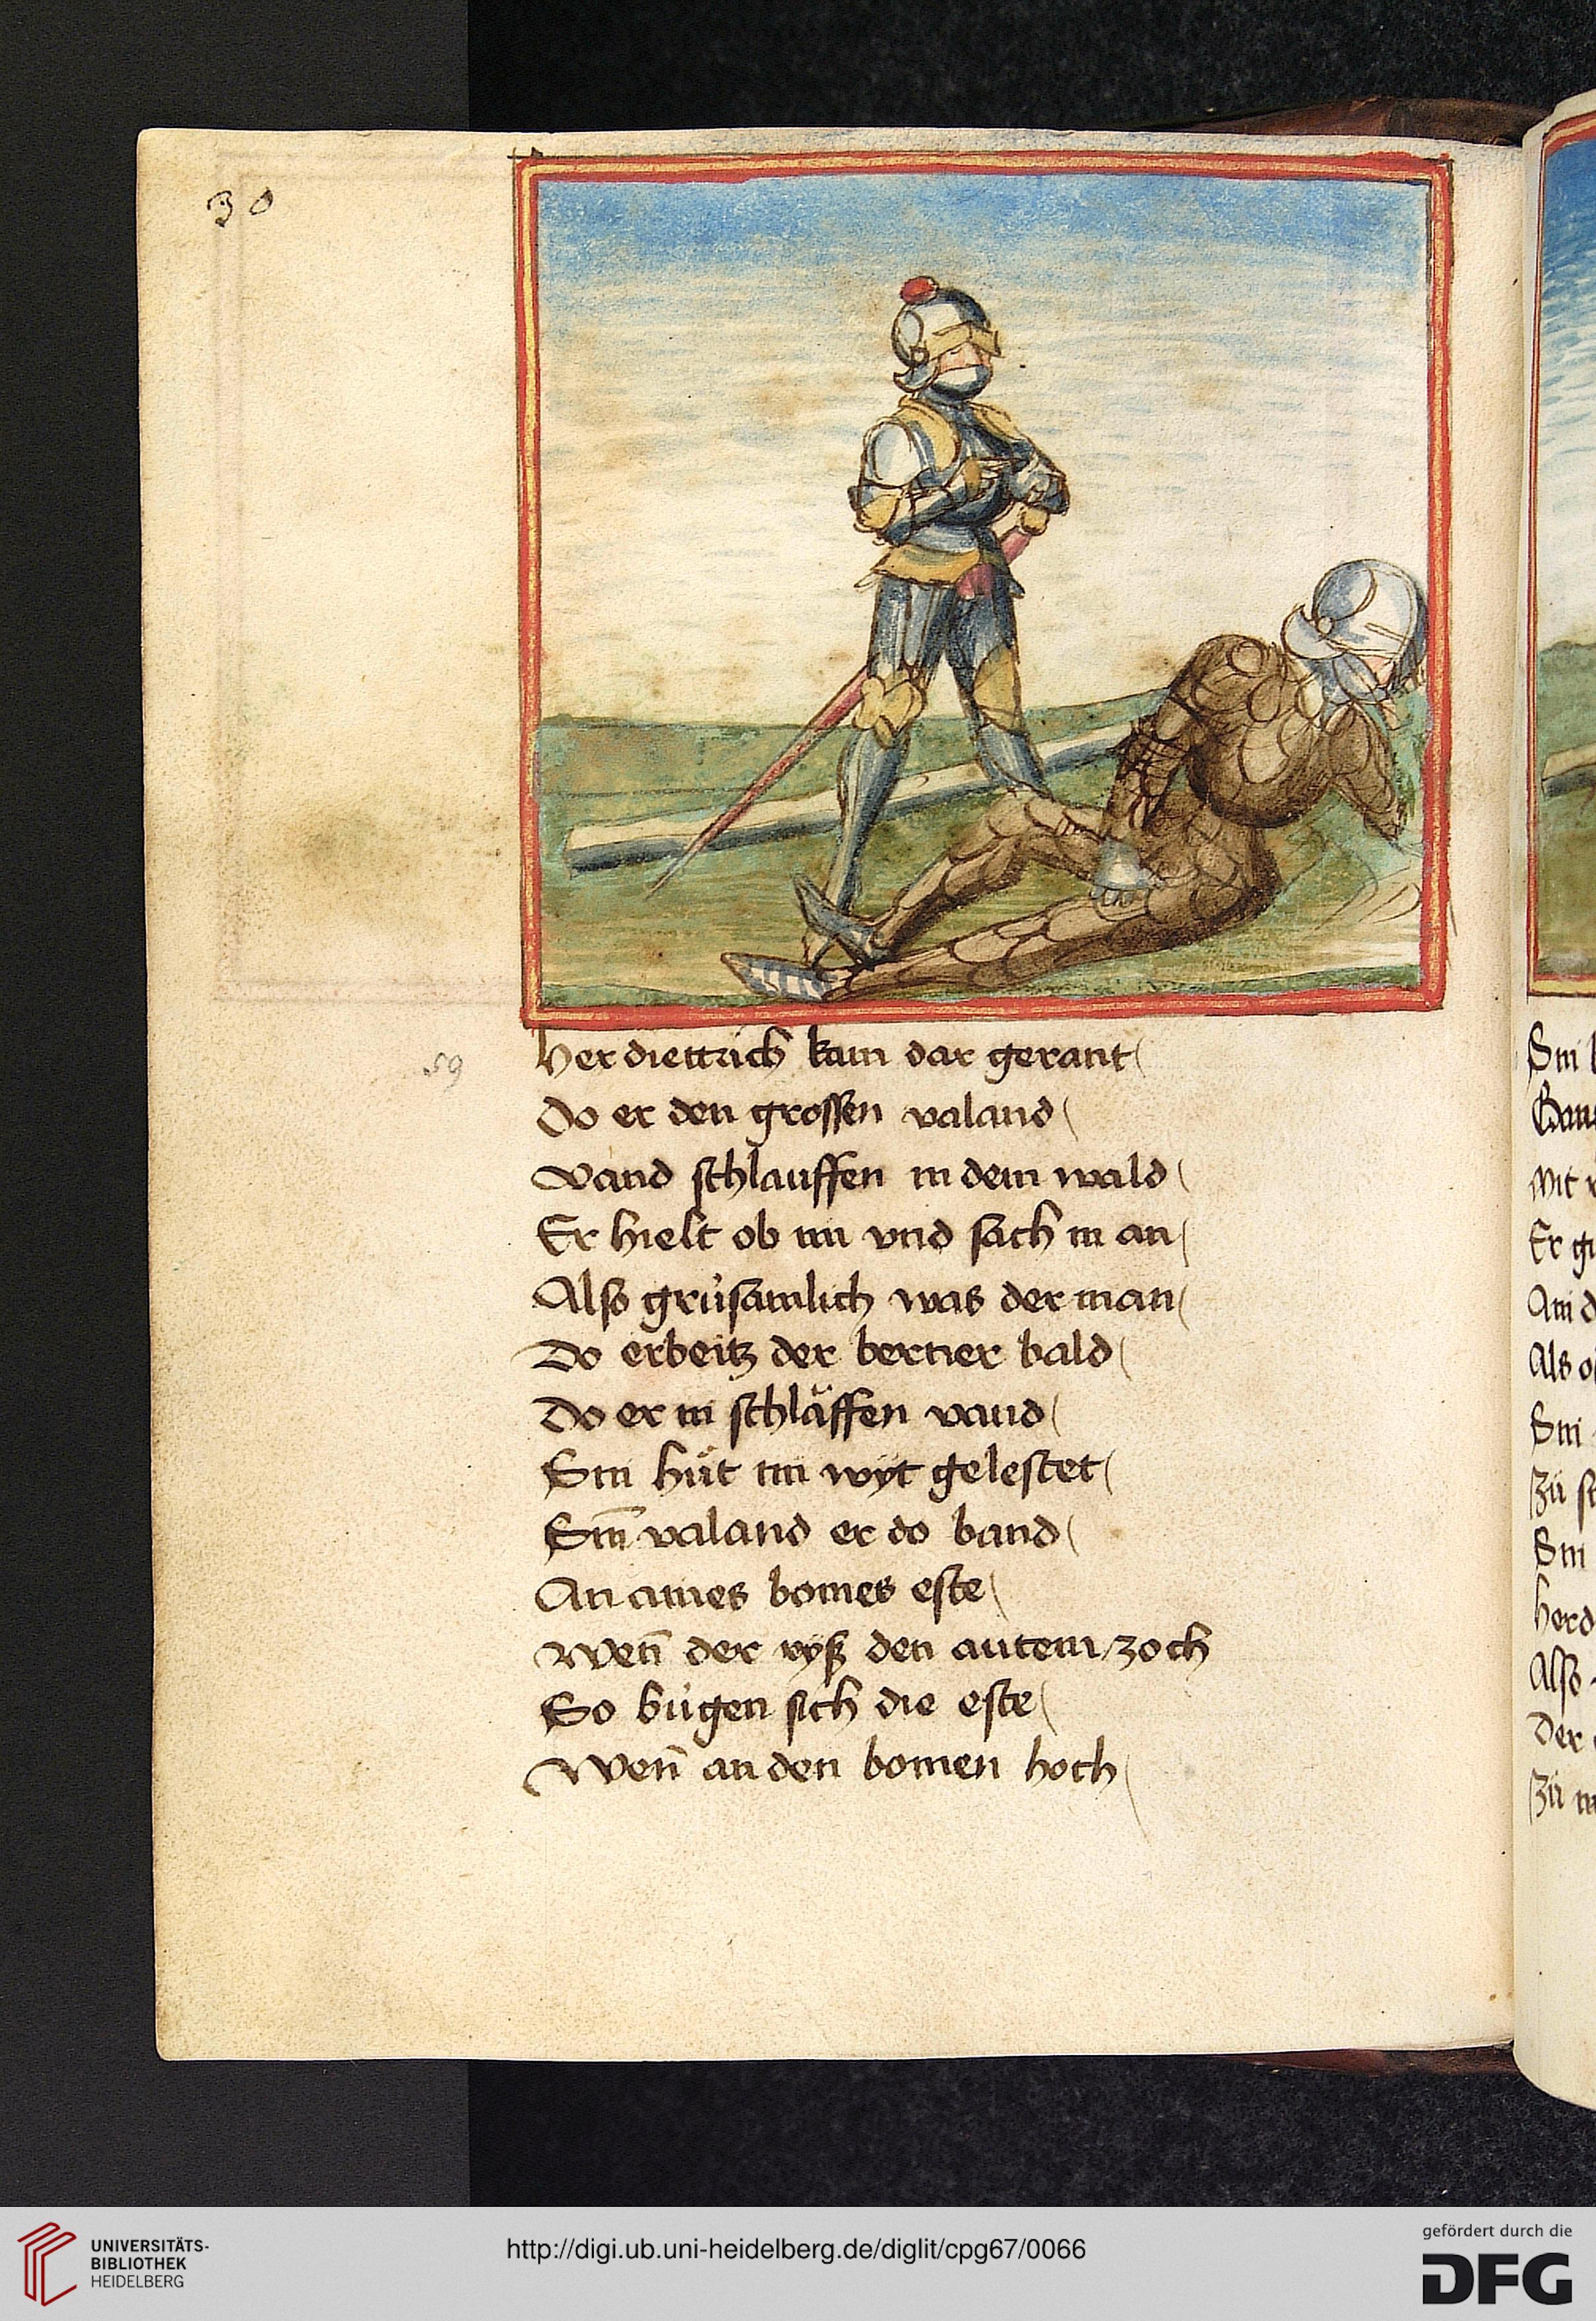 30
59
Her diettrich kam dar gerant
Do er den grossen valand
Vand schlauffen in dem wald
Er hielt ob im vnd sach in an
Also grúsamlich was der man
Do erbeitz der berner bald
Do er in schläffen vand
Sin hút im wyt gelestet
Sin̄ valand er do band
An aines bomes este
Wen̄ der ryß den autem zoch
So búgen sich die este
Wen̄ an den bomen hoch
Sin
Er
Am
Als
Sin
Zü
Sin
Also
Der
Zü
UNIVERSITÄTS-
BIBLIOTHEK
HEIDELBERG
http://digi.ub.uni-heidelberg.de/diglit/cpg67/0066
gefördert durch die
DFG